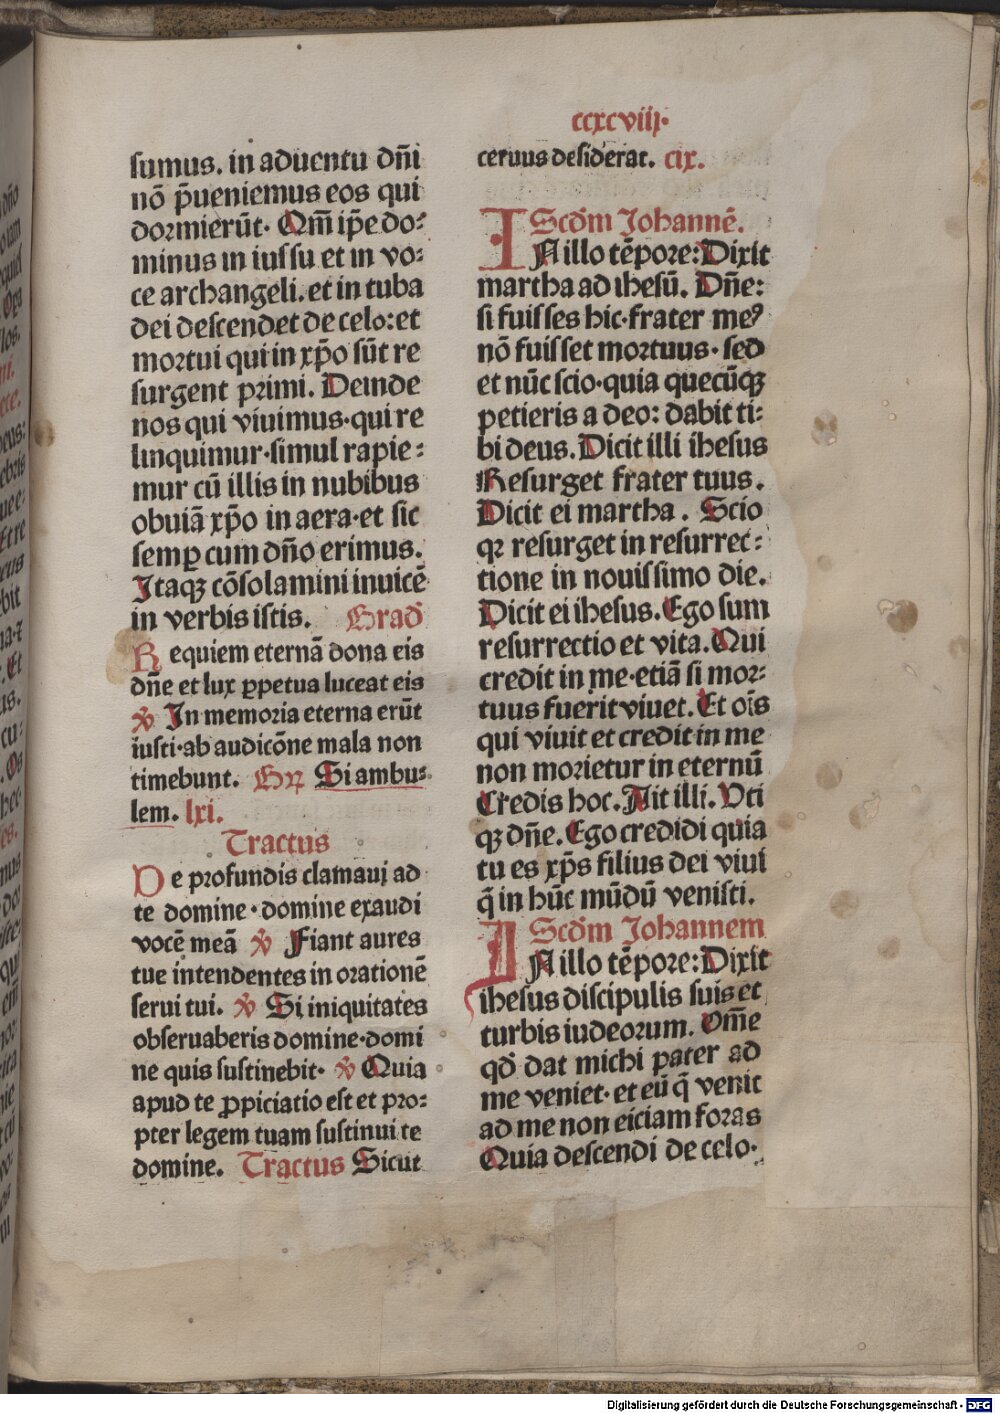 ccxcviij.
sumus. in aduentu dñi
nõ p̃ueniemus eos qui
dormierũt. Qm̃ ip̃e do:
minus in iussu et in vo:
ce archangeli. et in tuba
dei descendet de celo: et
mortui qui in xp̃o sũt re
surgent primi. Deinde
nos qui viuimus. qui re
linquimur. simul rapie:
mur cũ illis in nubibus
obuiã xp̃o in aera. et sic
semꝑ cum dño erimus.
Itaqꝫ cõsolamini inuicẽ
in verbis istis. Grad̃
Requiem eternã dona eis
dñe et lux ꝑpetua luceat eis
℣ In memoria eterna erũt
iusti. ab audicõne mala non
timebunt. Gꝝ Si ambu:
lem. lxi.
Tractus
De profundis clamauj ad
te domine. domine exaudi
vocẽ meã ℣ Fiant aures
tue intendentes in orationẽ
serui tui. ℣ Si iniquitates
obseruaberis domine. domi
ne quis sustinebit. ℣ Quia
apud te ꝓpiciatio est et pro:
pter legem tuam sustinui te
domine. Tractus Sicut
ceruus desiderat. cix.
Scd̃m Johannẽ.
IN illo tẽpore: Dixit
martha ad ihesũ. Dñe:
si fuisses hic. frater meꝰ
nõ fuisset mortuus. sed
et nũc scio. quia quecũqꝫ
petieris a deo: dabit ti:
bi deus. Dicit illi ihesus
Resurget frater tuus.
Dicit ei martha. Scio
qꝛ resurget in resurrec:
tione in nouissimo die.
Dicit ei ihesus. Ego sum
resurrectio et vita. Qui
credit in me. etiã si mor:
tuus fuerit viuet. Et oĩs
qui viuit et credit in me
non morietur in eternũ
Credis hoc. Ait illi. Vti
qꝫ dñe. Ego credidi quia
tu es xp̃s filius dei viui
q̃ in hũc mũdũ venisti.
Scd̃m Johannem
IN illo tẽpore: Dixit
ihesus discipulis suis et
turbis iudeorum. Om̃e
qd̃ dat michi pater ad
me veniet. et eũ q̃ venit
ad me non eiciam foras
Quia descendi de celo.
Digitalisierung gefördert durch die Deutsche Forschungsgemeinschaft - DFG